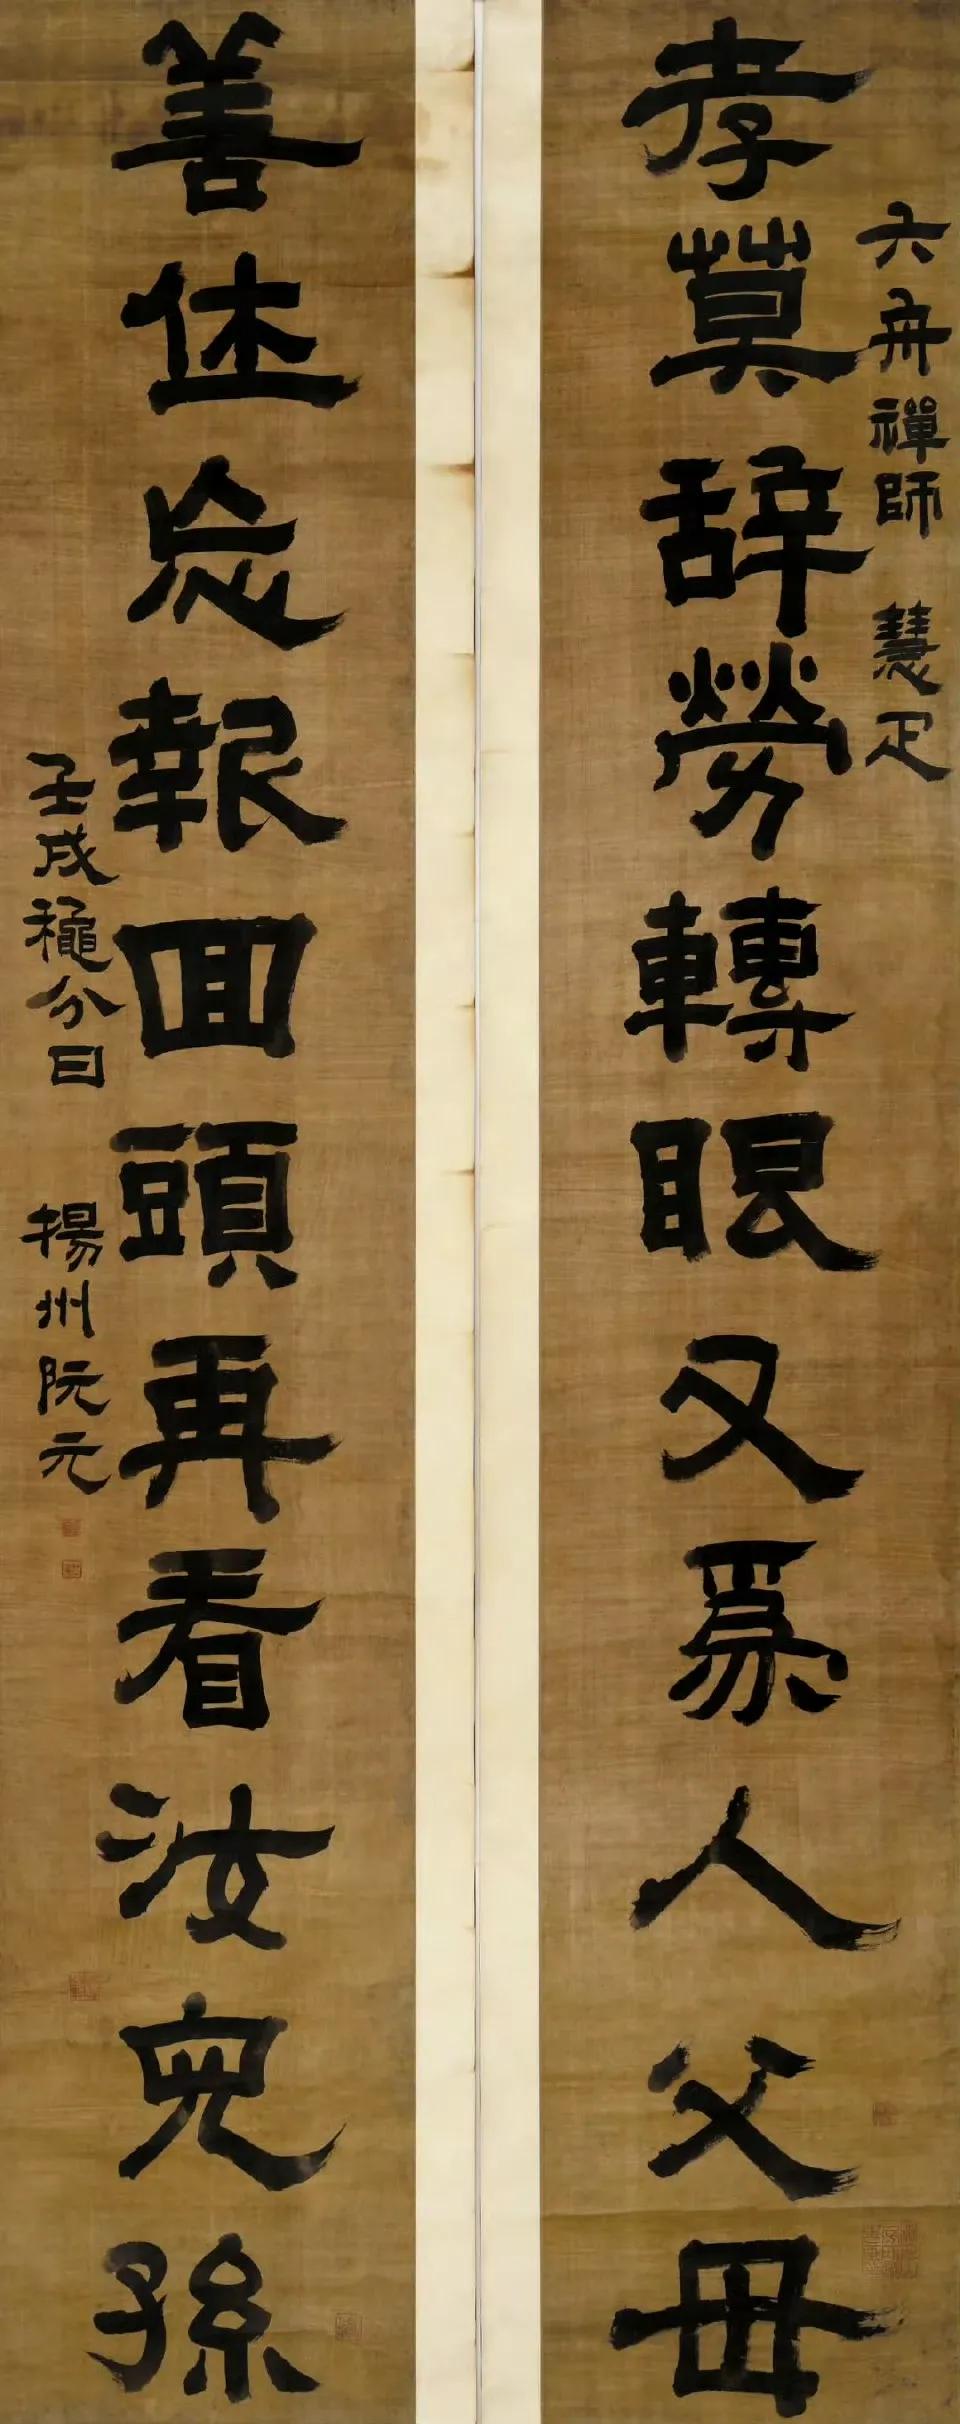 六舟禪師 慧疋
孝莫辞勞轉眼又爲人父母
善休念報回頭再看汝兒孫
壬戌穐分日 揚州阮元